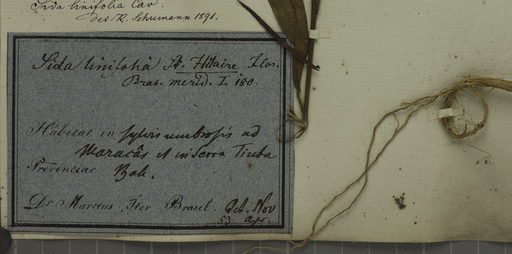 Sida linifolia Cav.
det. K. Schumann 1891.
Sida linifolia St. Hilaire Flor.
Bras. merid. I. 180.
Habitat in sylvis umbrosis ad
Maracâs et in Serra Tiuba
Provinciae Bah.
Dr. Martius Iter Brasil. Oct. Nov